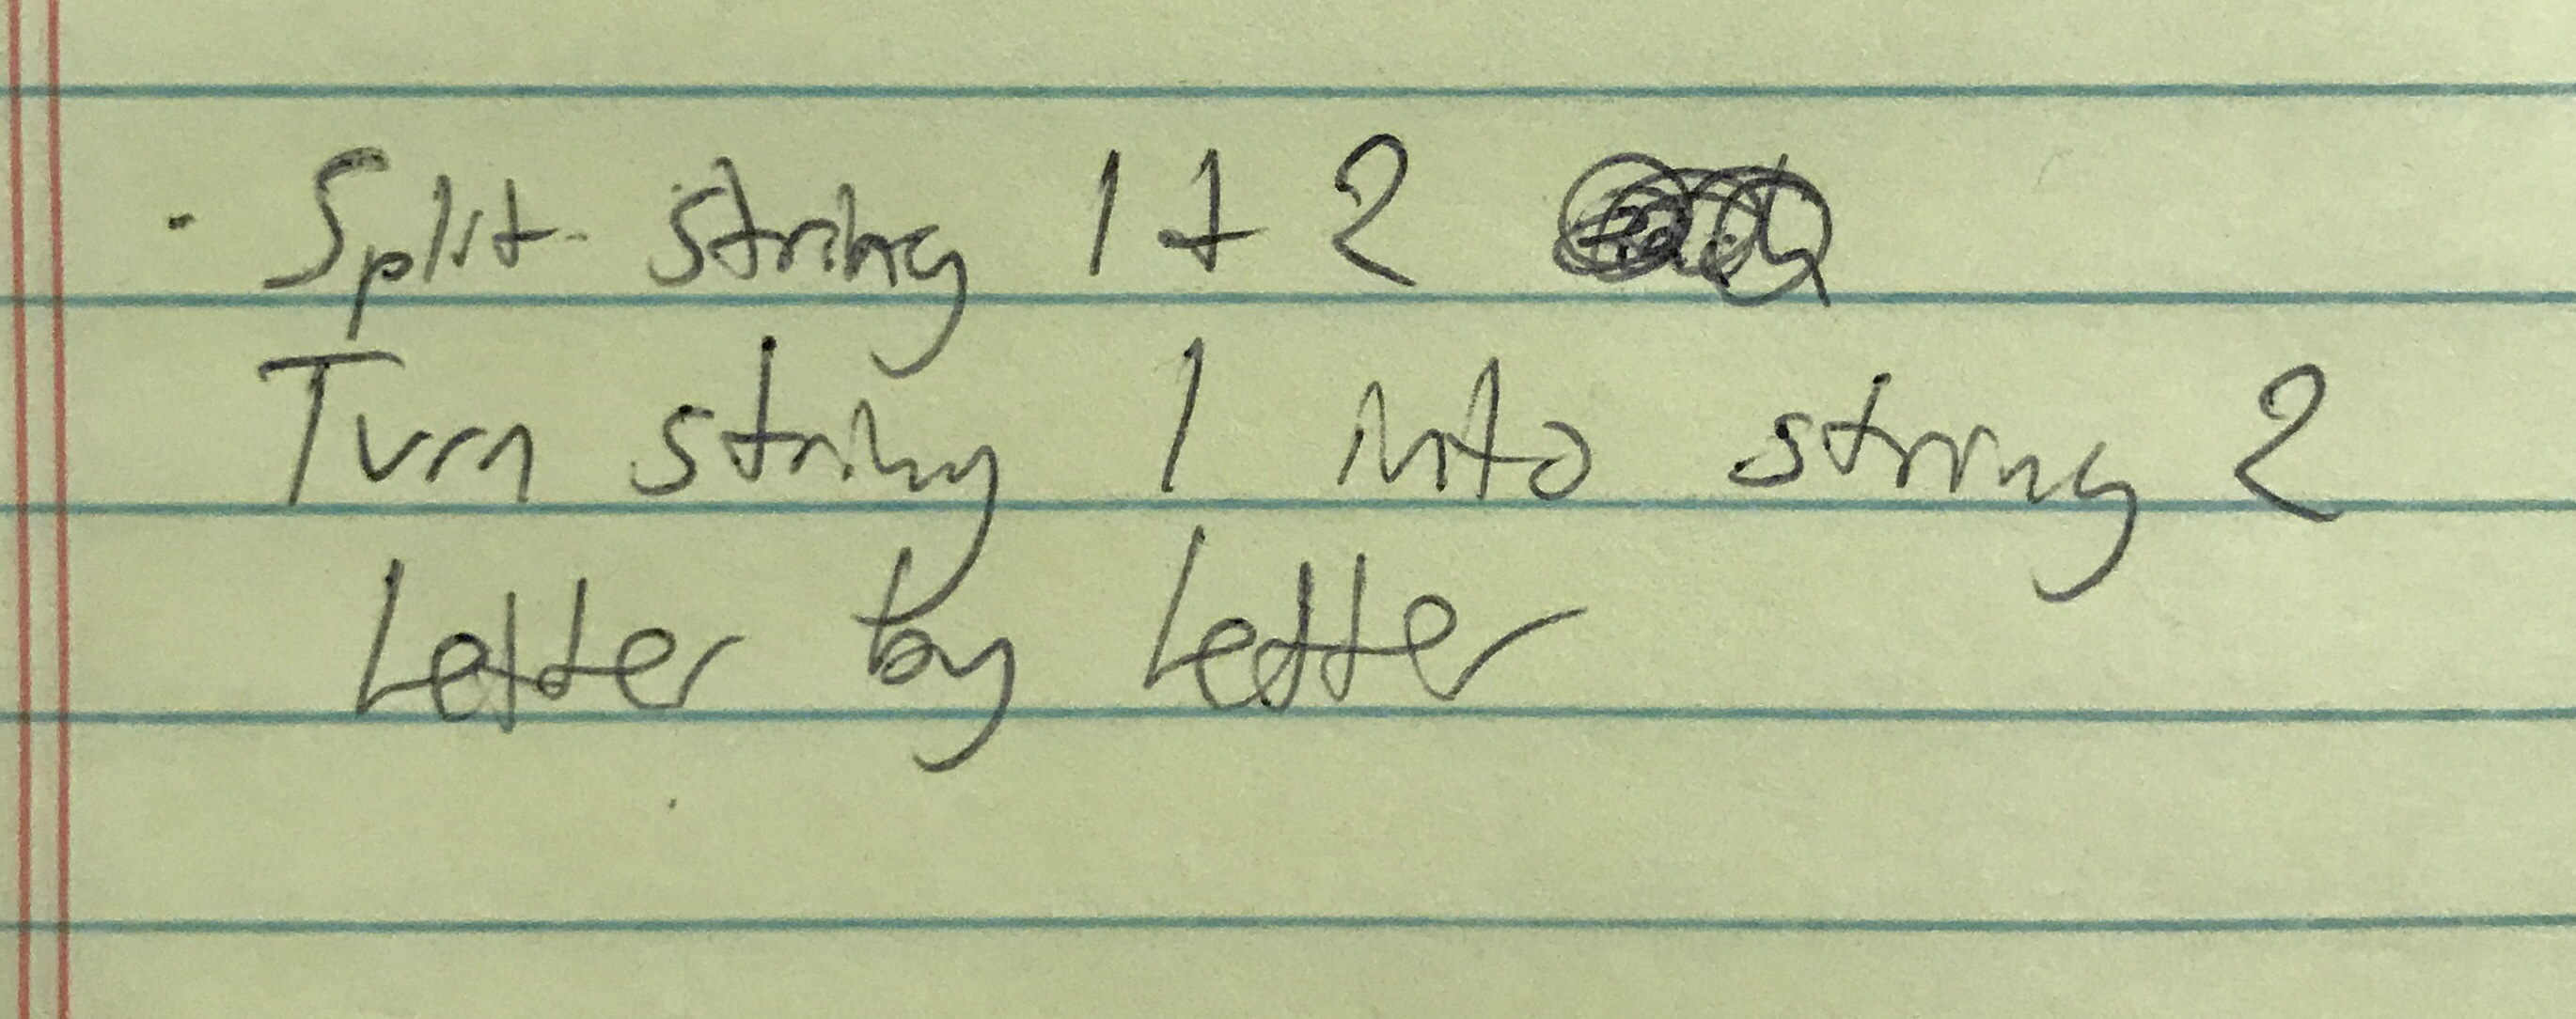 · Split string 1 + 2
Turn string 1 into string 2
Letter by letter